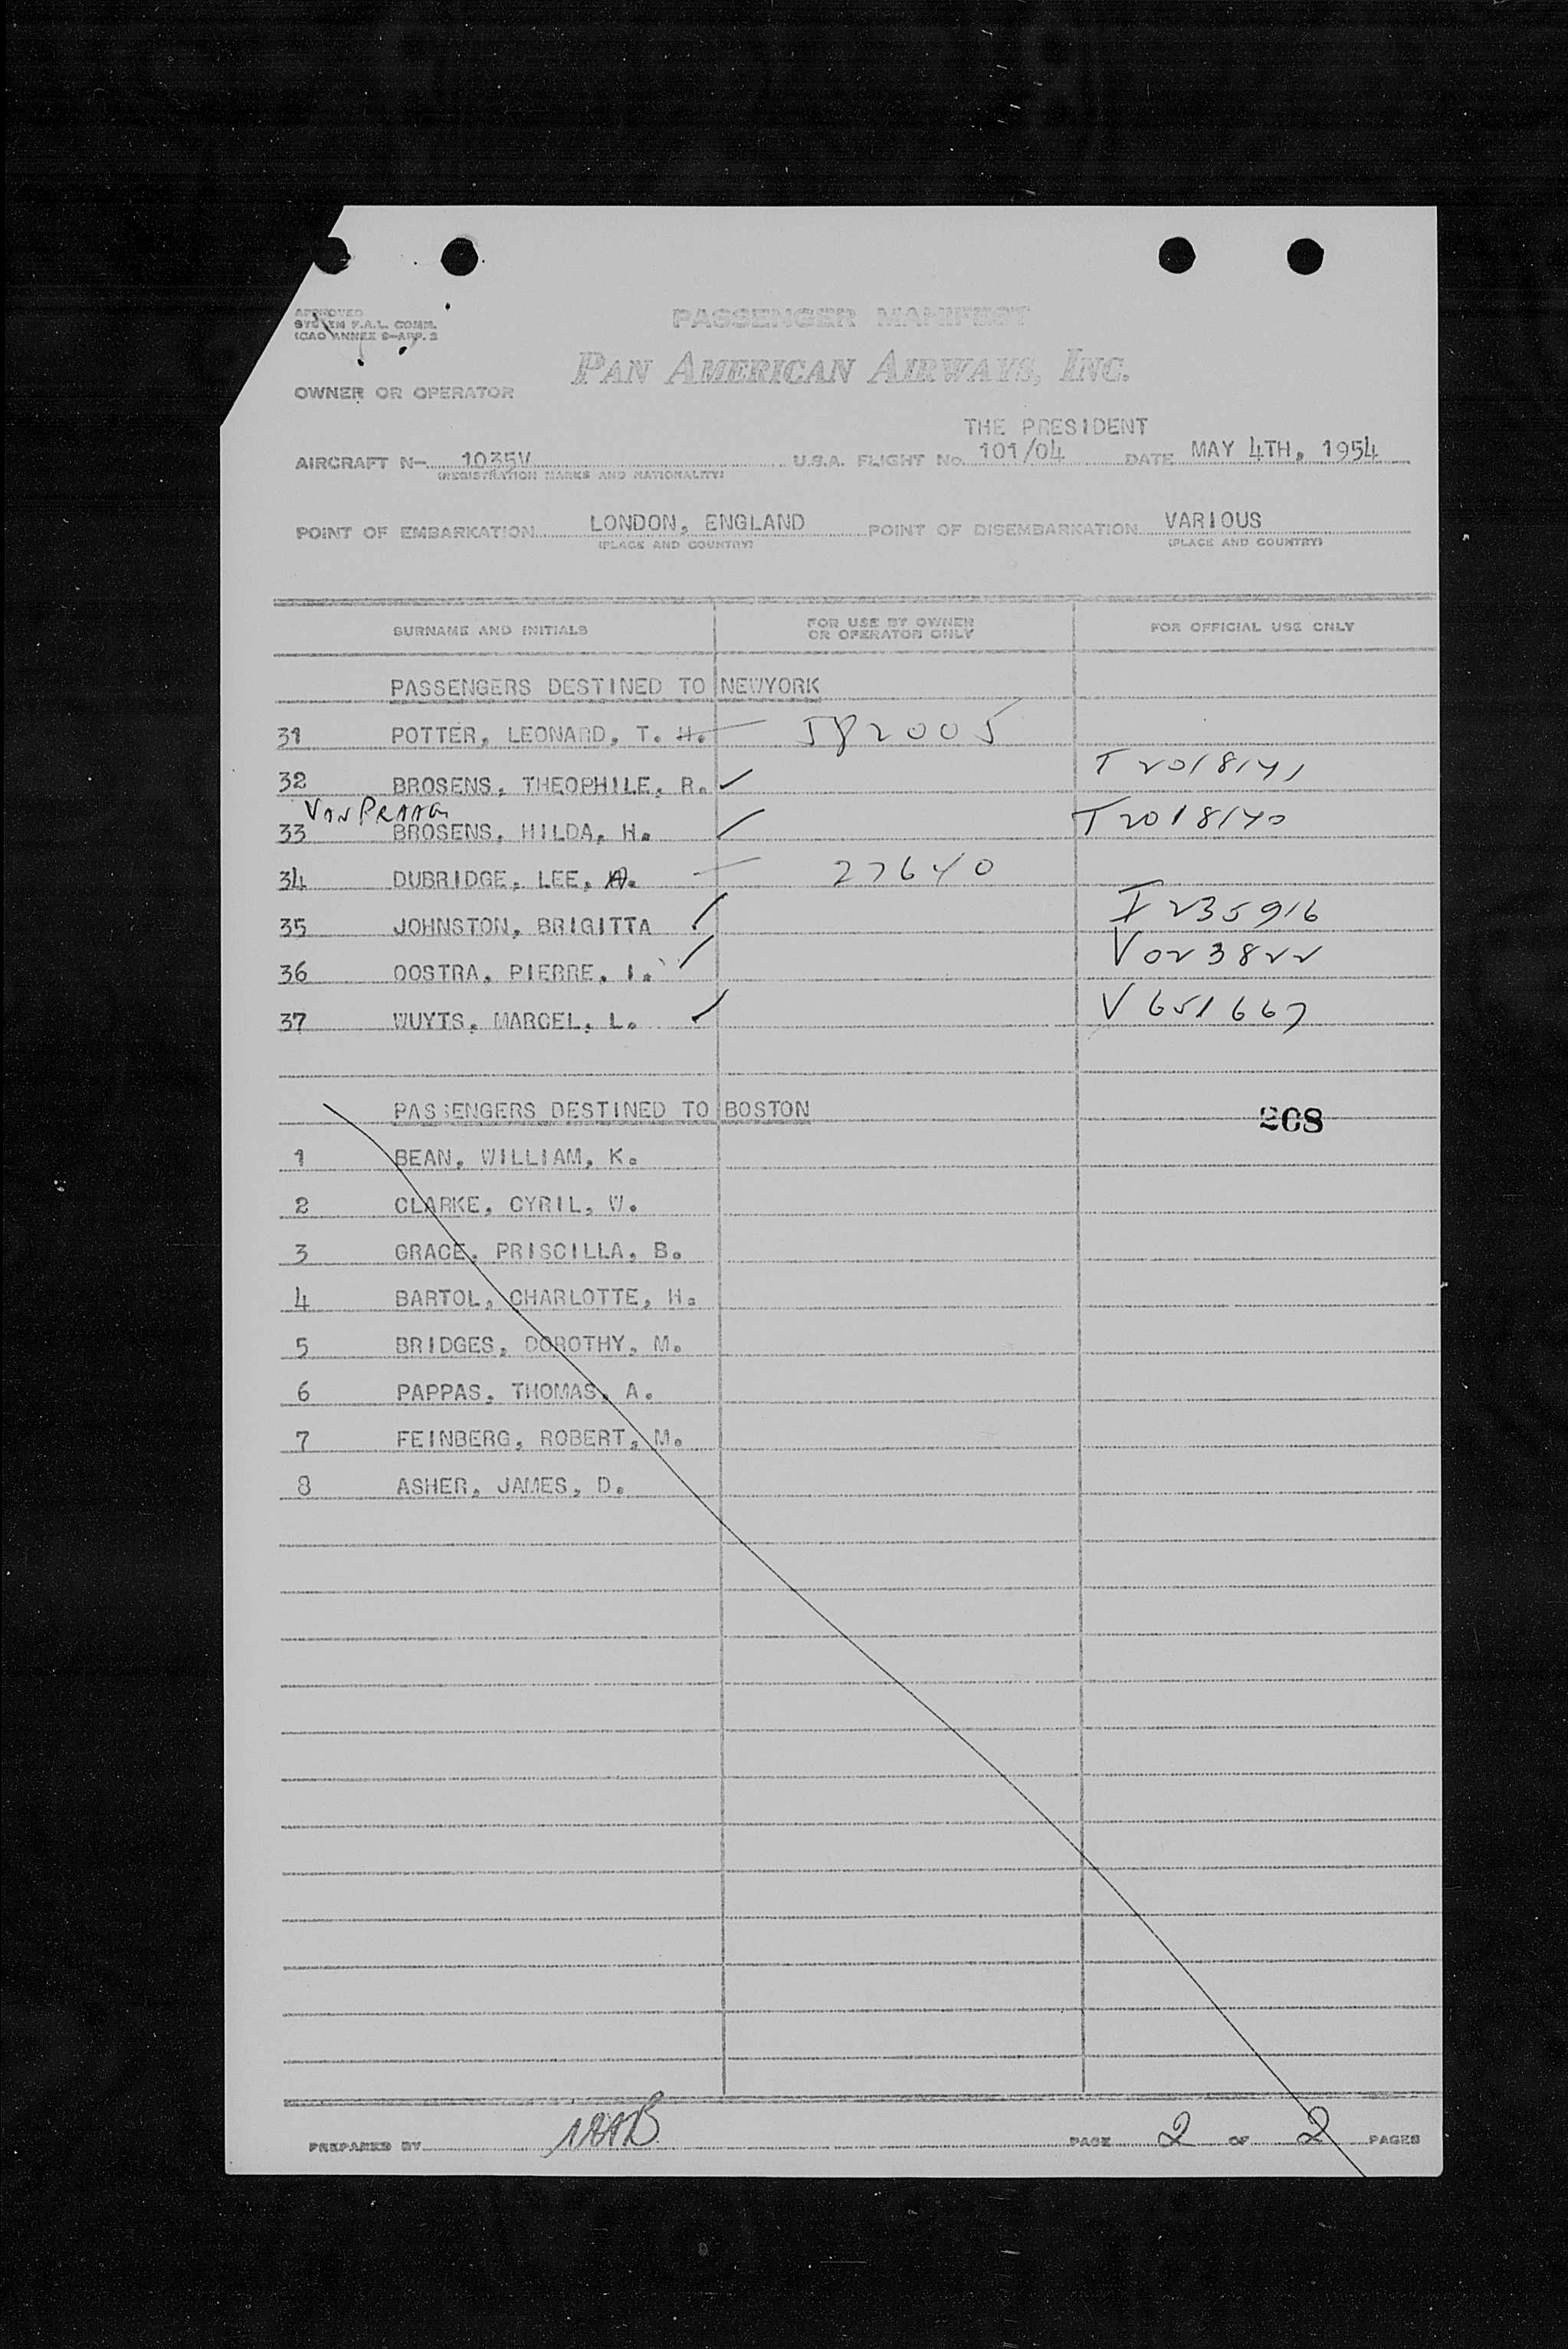 APPROVED
SYSTEM F.A.L. COMM.
ICAO ANNEX 9-APP. 3
PASSENGER MANIFEST
PAN AMERICAN AIRWAYS, INC.
OWNER OR OPERATOR
THE PRESIDENT
AIRCRAFT N- 1035V U.S.A. FLIGHT No. 101/04 DATE MAY 4TH, 1954
(REGISTRATION MARKS AND NATIONALITY)
POINT OF EMBARKATION LONDON, ENGLAND POINT OF DISEMBARKATION VARIOUS
(PLACE AND COUNTRY) (PLACE AND COUNTRY)
SURNAME AND INITIALS FOR USE BY OWNER OR OPERATOR ONLY FOR OFFICIAL USE ONLY
PASSENGERS DESTINED TO NEWYORK
31 POTTER, LEONARD, T. H. 582005
32 BROSENS, THEOPHILE, R. T2018141
VAN PRAAG
33 BROSENS, HILDA, H. T2018140
34 DUBRIDGE, LEE, A. 27640
35 JOHNSTON, BRIGITTA I 235916
36 OOSTRA, PIERRE, I. V023822
37 WUYTS, MARCEL, L. V651667
PASSENGERS DESTINED TO BOSTON
208
1 BEAN, WILLIAM, K.
2 CLARKE, CYRIL, W.
3 GRACE, PRISCILLA, B.
4 BARTOL, CHARLOTTE, H.
5 BRIDGES, DOROTHY, M.
6 PAPPAS, THOMAS, A.
7 FEINBERG, ROBERT, M.
8 ASHER, JAMES, D.
PREPARED BY PAGE 2 OF 2 PAGES